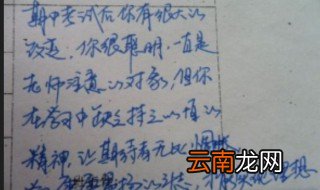 期中考试后你有很大的
改变，你很聪明，一直是
老师注意的对象，但你
在学习中缺乏持之以恒的
精神，让期待有无比
的状态
理想
云南龙网